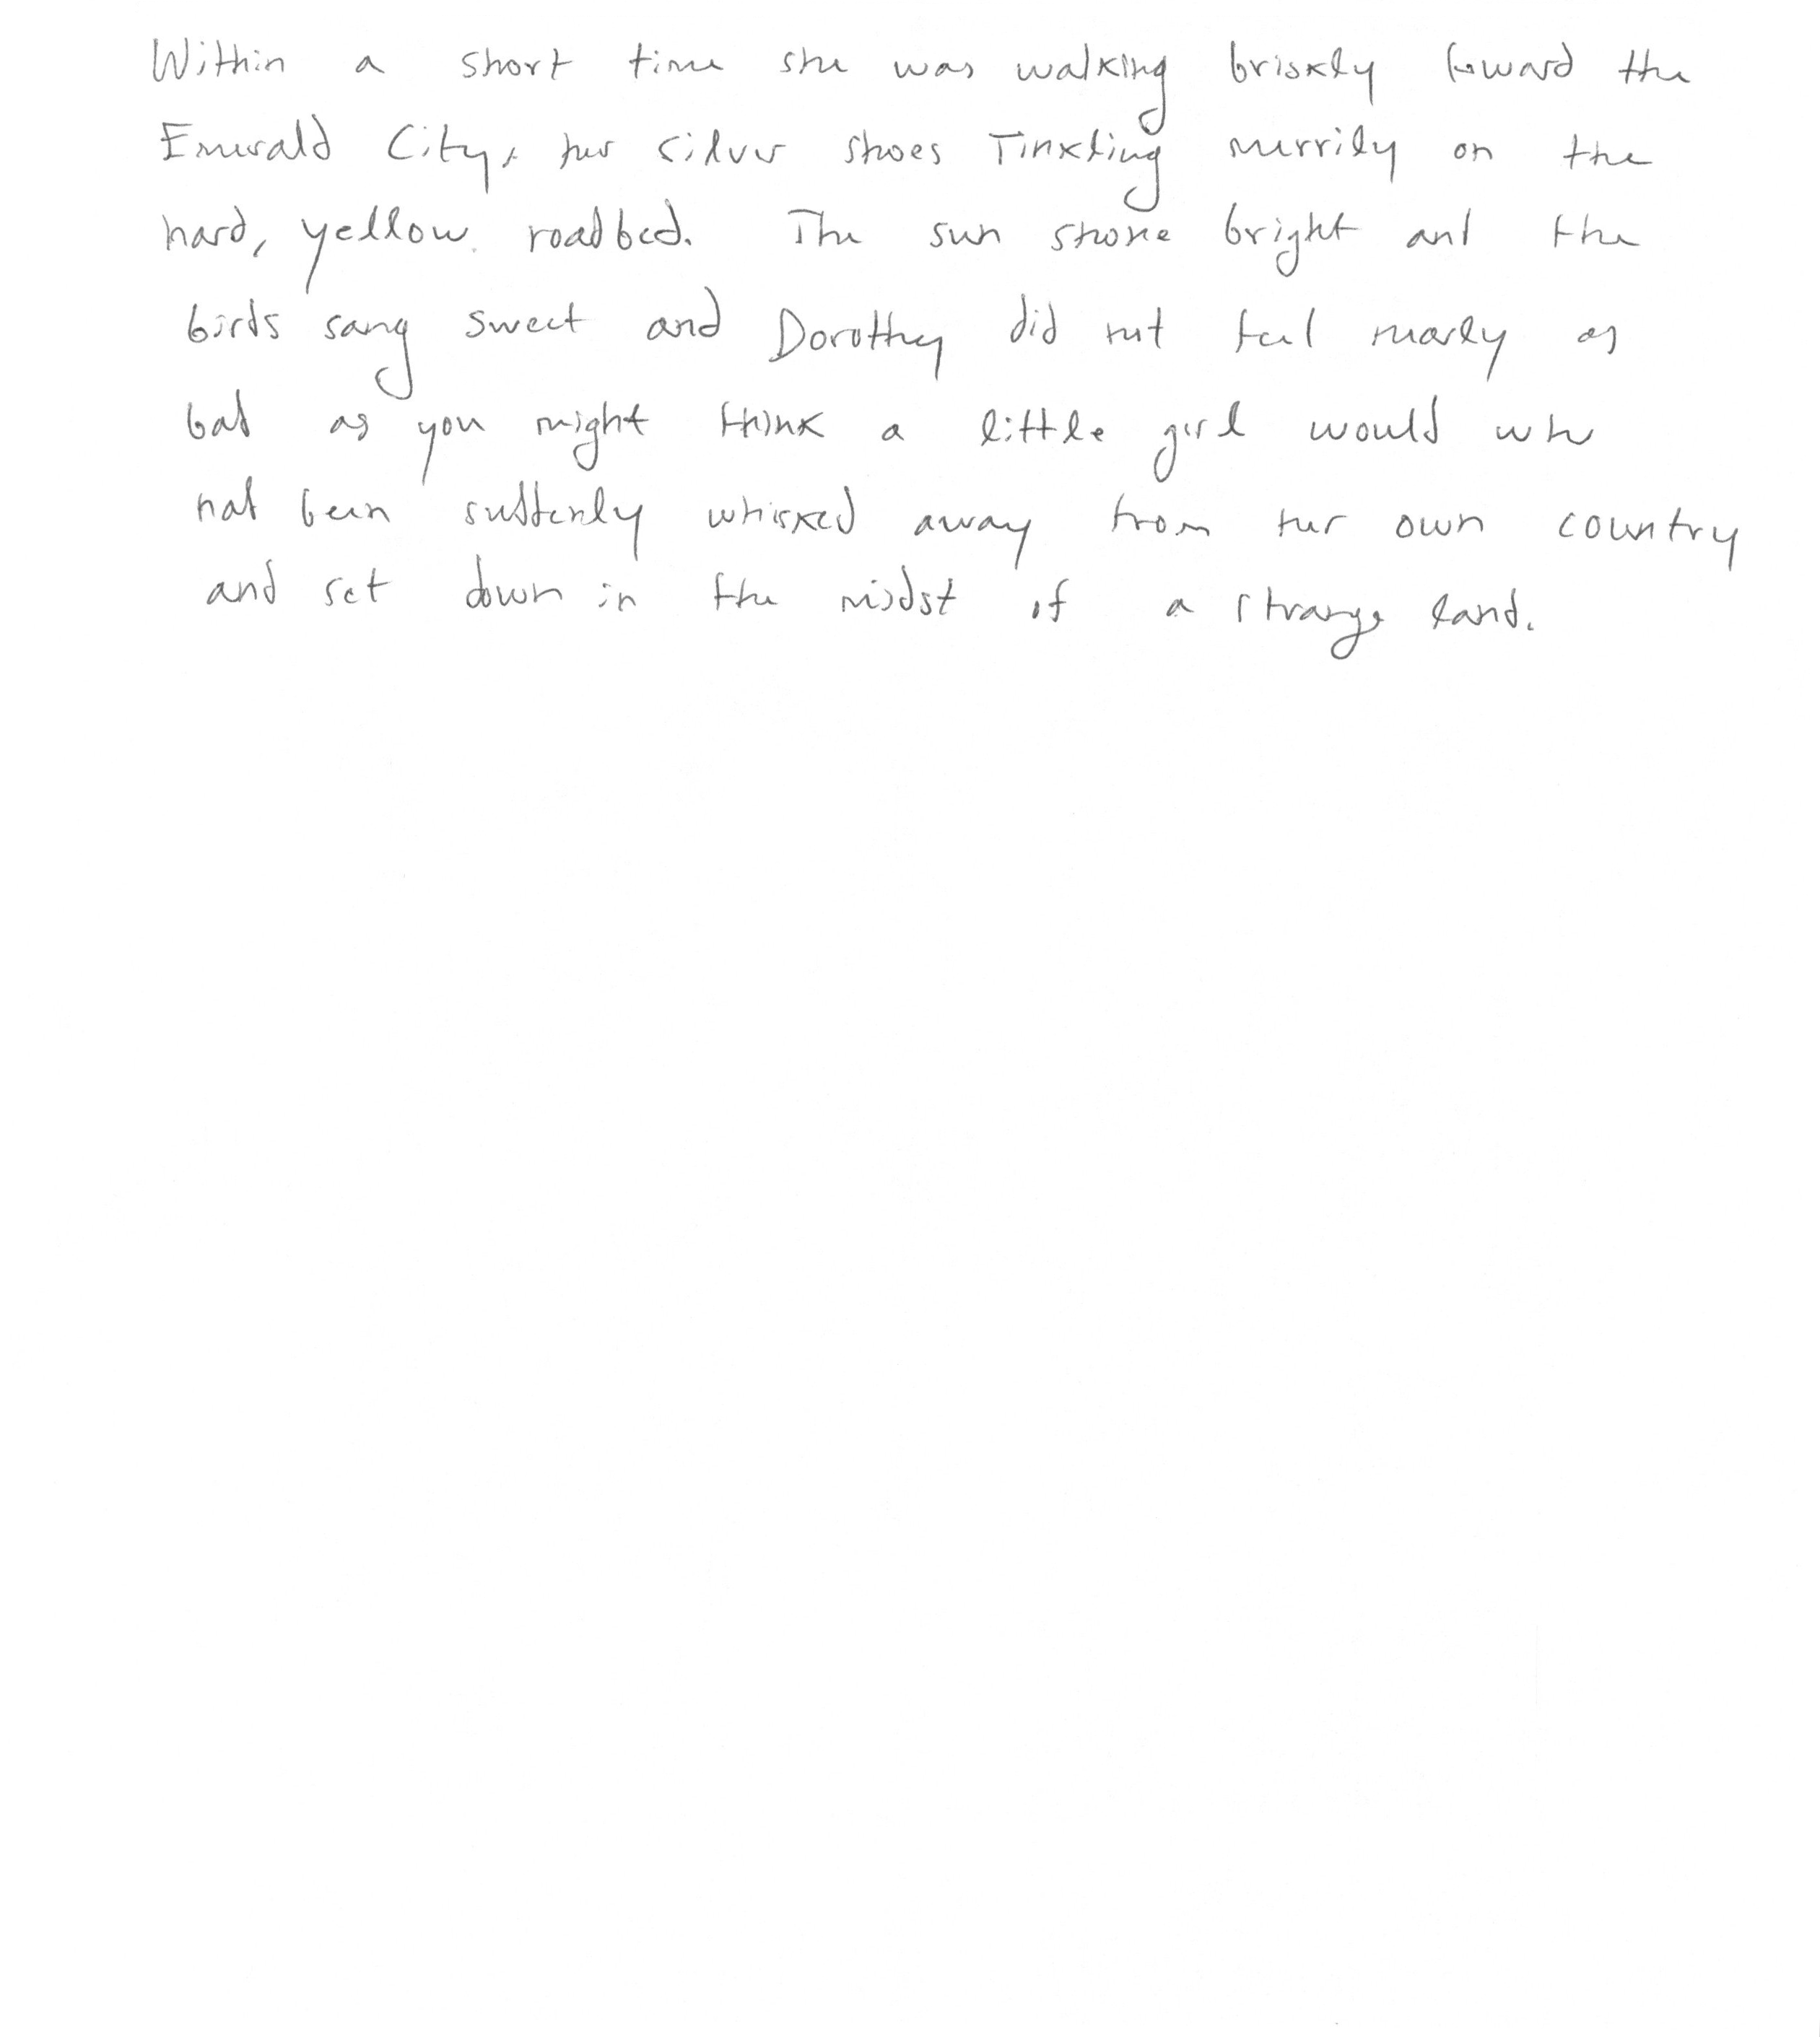 Within a short time she was walking briskly toward the
Emerald City, her silver shoes Tinkling merrily on the
hard, yellow roadbed. The sun shone bright and the
birds sang sweet and Dorothy did not feel nearly as
bad as you might think a little girl would who
had been suddenly whisked away from her own country
and set down in the midst of a strange land.